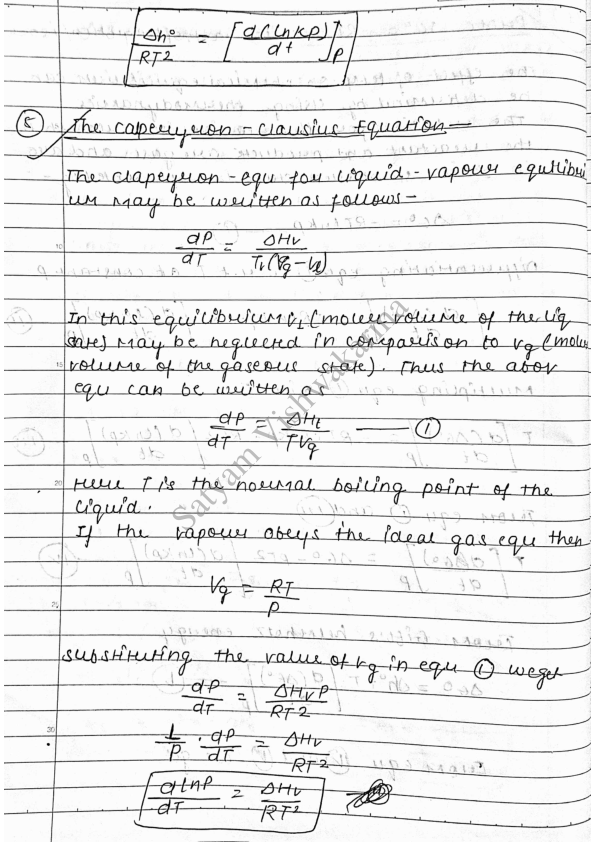 Δh° / RT2 = [d(lnKP) / dt]P
5 The capenyron - clausius Equation —
The clapeyron - equ for liquid - vapour equilibri
um may be written as follows -
dP/dT = ΔHv / Tv(Vg-Vl)
In this equilibrium VL (molar volume of the liq
state) may be neglected in comparison to Vg (molar
volume of the gaseous state). Thus the abov
equ can be written as
dP/dT = ΔHt / TVg — ①
Here T is the normal boiling point of the
liquid.
If the vapour obeys the ideal gas equ then
Vg = RT/P
substituting the value of Vg in equ ① we get
dP/dT = ΔHvP / RT2
1/P . dP/dT = ΔHv / RT2
dlnP/dT = ΔHv / RT2
Satyam Vishwakarma